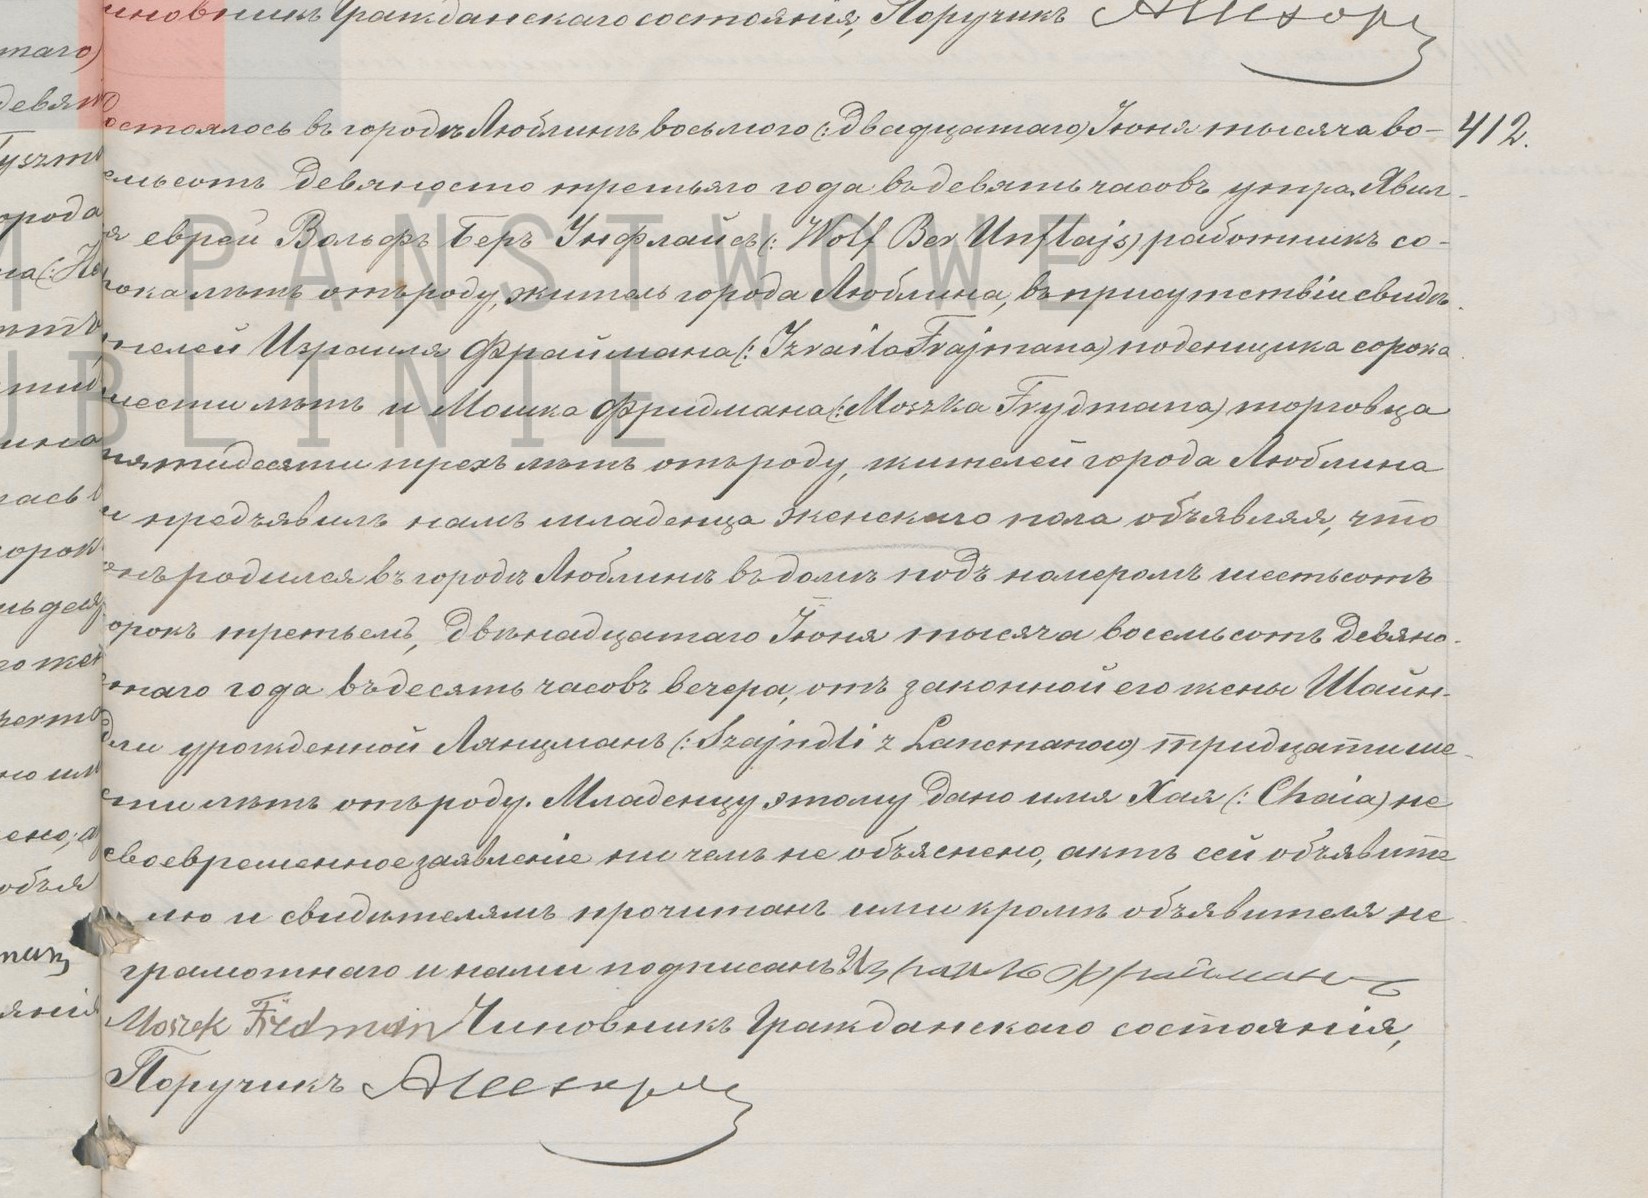 иновникъ Гражданскаго состоянія, Поручикъ
таго)
девян
остоялось въ городѣ Люблинѣ, восьмого (:двадцатаго) Іюня тысяча во- 412.
емьсотъ девяносто третьяго года въ девять часовъ утра. Явил-
я еврей Вольфъ Беръ Унфлайсъ (: Wolf Ber Unflajs) работникъ со-
рока лѣтъ отъ роду, житель города Люблина, въ присутствіи свидѣ-
телей Израиля Фраймана (: Izraila Frajmana) поденщика сорока
шести лѣтъ и Мошка Фридмана (: Moszka Frydmana) торговца
пятидесяти трехъ лѣтъ отъ роду, жителей города Люблина
и предъявилъ намъ младенца женскаго пола объявляя, что
онъ родился въ городѣ Люблинѣ въ домѣ подъ номеромъ шестьсотъ
орокъ третьемъ, двѣнадцатаго Іюня тысяча восемьсотъ девяно-
таго года въ десять часовъ вечера, отъ законной его жены Шайн-
дли урожденной Лянцманъ (: Szajndli z Lancmanow) тридцати ше-
сти лѣтъ отъ роду. Младенцу этому дано имя Хая (: Chaia) не
своевременное заявленіе ни чемъ не объяснено, актъ сей объявите
лю и свидѣтелямъ прочитанъ ими кромѣ объявителя не
грамотнаго и нами подписанъ Израиль Файманъ
Moszek Fridman Чиновникъ Гражданскаго состоянія,
Поручикъ
PAŃSTWOWE
UBLINIE